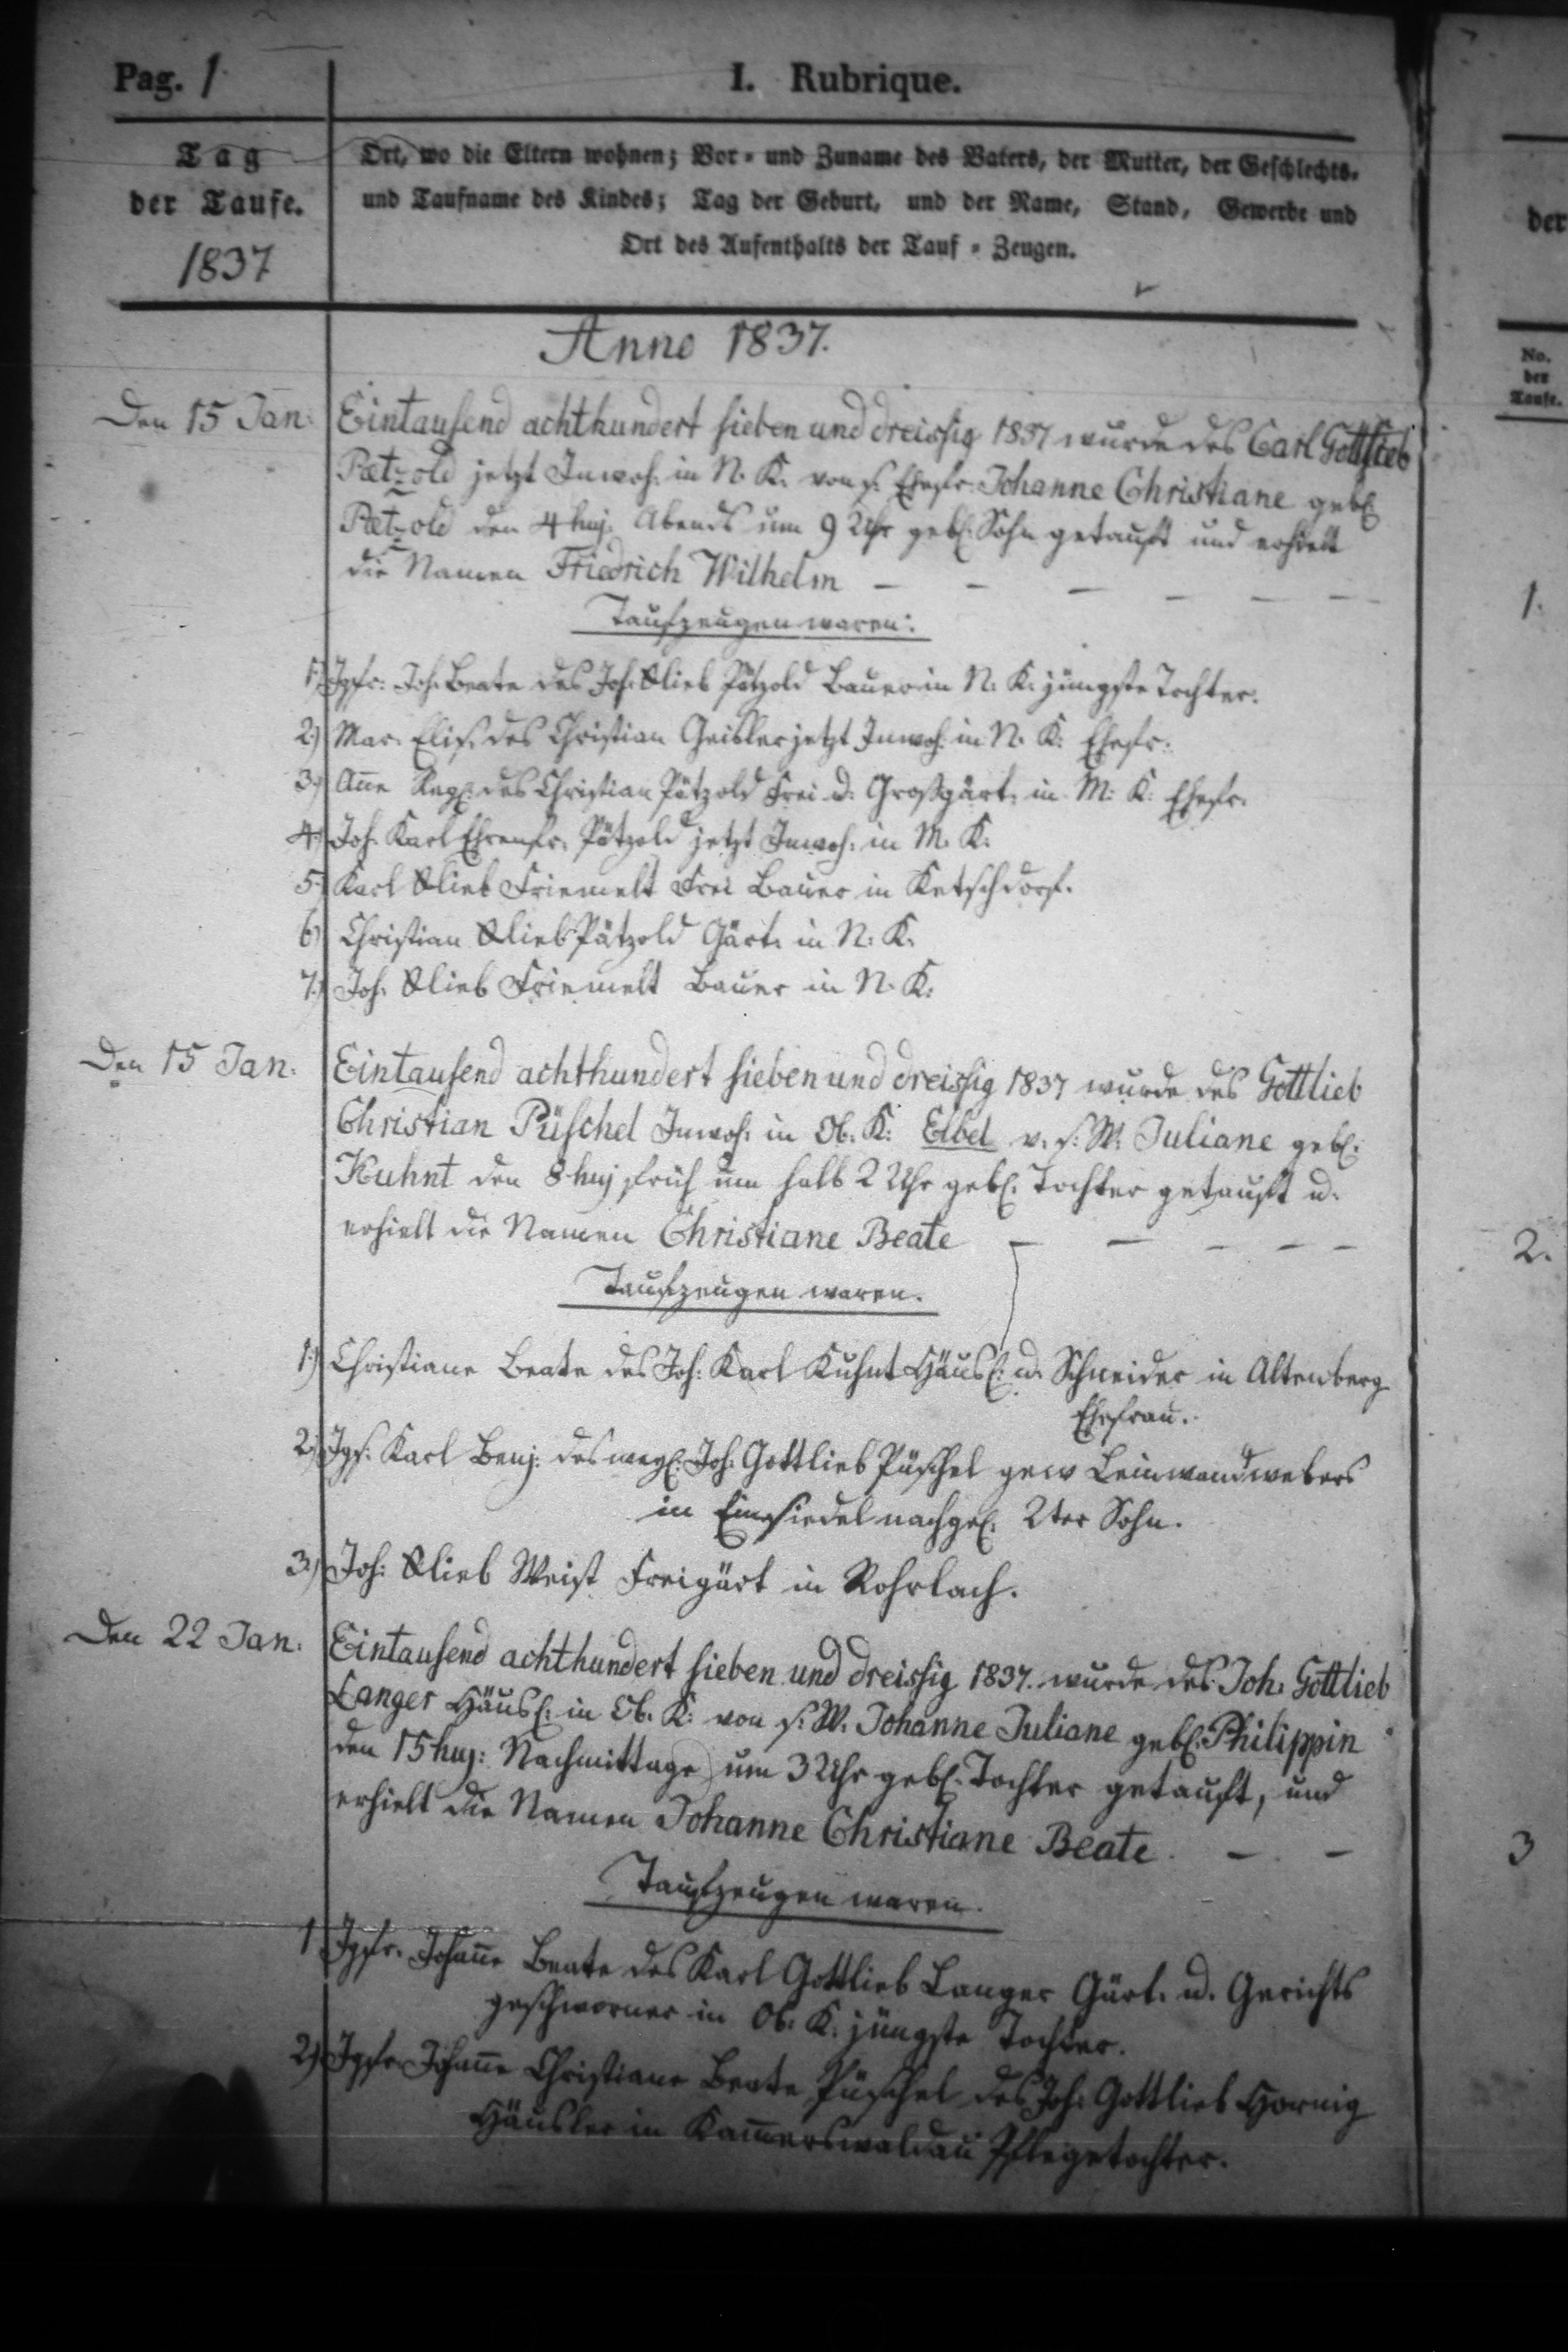 Pag. 1
I. Rubrique.
Tag
der Taufe.
1837
Ort, wo die Eltern wohnen; Vor- und Zuname des Vaters, der Mutter, der Geschlechts-
und Taufname des Kindes; Tag der Geburt, und der Name, Stand, Gewerbe und
Ort des Aufenthalts der Tauf-Zeugen.
Anno 1837.
Den 15 Jan: Eintausend achthundert sieben und dreissig 1837 wurde des Carl Gottlieb
Pætzold jetzt Inwoh: in N. K. von s. Ehefr: Johanne Christiane gebl:
Pætzold den 4 huj. Abends um 9 Uhr gebl. Sohn getauft und erhielt
die Namen Friedrich Wilhelm — — — — — —
Taufzeugen waren:
1.) Jgfr: Joh. Beate des Joh. Glieb Pätzold Bauer in N. K. jüngste Tochter.
2.) Mar. Elis. des Christian Geisler jetzt Inwoh. in N. K: Ehefr:
3.) Ane Regl: des Christian Pätzold Frei u. Großgärt. in M: K: Ehefr.
4.) Joh. Karl Ehrenfr. Pätzold jetzt Inwoh: in M. K.
5.) Karl Glieb Friemelt Frei Bauer in Ketschdorf.
6.) Christian Glieb Pätzold Gärt. in N. K.
7.) Joh. Glieb Friemelt Bauer in N. K.
Den 15 Jan. Eintausend achthundert sieben und dreissig 1837 wurde des Gottlieb
Christian Püschel Inwoh. in Ob. K: Elbel v. s. W. Juliane gebl:
Kuhnt den 8 huj früh um halb 2 Uhr gebl. Tochter getauft u.
erhielt die Namen Christiane Beate — — — — —
Taufzeugen waren.
1.) Christiane Beate des Joh: Karl Kuhnt Häusl: u. Schneider in Altenberg
Ehefrau.
2.) Jgs. Karl Benj. des wegl: Joh. Gottlieb Püschel gew Leinwandwebers
in Einsiedel nachgel. 2ter Sohn.
3.) Joh: Glieb Weist Freigärt in Rohrlach.
Den 22 Jan. Eintausend achthundert sieben und dreissig 1837. wurde des Joh: Gottlieb
Langer Häusl: in Ob. K: von s. W. Johanne Juliane gebl: Philippin
den 15 huj: Nachmittage um 3 Uhr gebl. Tochter getauft, und
erhielt die Namen Johanne Christiane Beate. — —
Taufzeugen waren.
1 Jgfr. Johane Beate des Karl Gottlieb Langer Gärt. u. Gerichts
geschworner in Ob. K. jüngste Tochter.
2.) Jgfr Johane Christiane Beate Püschel des Joh: Gottlieb Hornig
Häusler in Kamerswaldau Pflegetochter.
der
No.
der
Taufe.
1.
2.
3